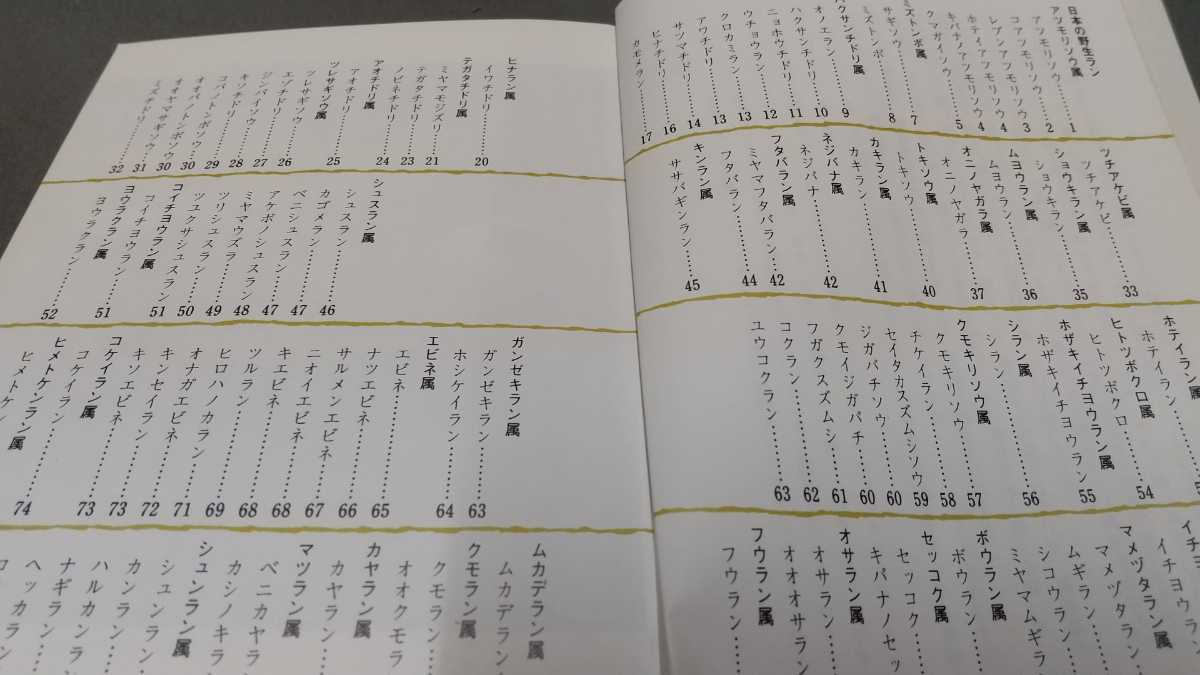 日本の野生ラン
アツモリソウ属
アツモリソウ……1
コアツモリソウ……2
レブンアツモリソウ……3
ホテイアツモリソウ……4
キバナノアツモリソウ……4
クマガイソウ……5
ミズトンボ属
サギソウ……7
ミズトンボ……8
ハクサンチドリ属
オノエラン……9
ハクサンチドリ……10
ニョホウチドリ……11
ウチョウラン……12
クロカミラン……13
アワチドリ……13
サツマチドリ……14
ヒナチドリ……16
カモメラン……17
ツチアケビ属
ツチアケビ……33
ショウキラン属
ショウキラン……35
ムヨウラン属
ムヨウラン……36
オニノヤガラ属
オニノヤガラ……37
トキソウ属
トキソウ……40
カキラン属
カキラン……41
ネジバナ属
ネジバナ……42
フタバラン属
ミヤマフタバラン……42
フタバラン……44
キンラン属
ササバギンラン……45
ホテイラン属
ホテイラン
ヒトツボクロ属
ヒトツボクロ……54
ホザキイチヨウラン属
ホザキイチヨウラン……55
シラン属
シラン……56
クモキリソウ属
クモキリソウ……57
チケイラン……58
セイタカスズムシソウ……59
ジガバチソウ……60
クモイジガバチ……60
フガクスズムシ……61
コクラン……62
ユウコクラン……63
イチヨウラン
マメヅタラン属
マメヅタラン
ムギラン
シコウラン
ミヤマムギラ
ボウラン属
ボウラン
セッコク属
セッコク
キバナノセッ
オサラン属
オサラン
オオオサラン
フウラン属
フウラン
ヒナラン属
イワチドリ……20
テガタチドリ属
ミヤマモジズリ……21
テガタチドリ……23
ノビネチドリ……24
アオチドリ属
アオチドリ……25
ツレサギソウ属
ツレサギソウ……26
エゾチドリ……27
ジンバイソウ……28
キソチドリ……29
コバノトンボソウ……30
オオバノトンボソウ……30
オオヤマサギソウ……31
ミズチドリ……32
シュスラン属
シュスラン……46
カゴメラン……47
ベニシュスラン……47
アケボノシュスラン……48
ミヤマウズラ……49
ツリシュスラン……50
ツユクサシュスラン……51
コイチヨウラン属
コイチヨウラン……51
ヨウラクラン属
ヨウラクラン……52
ガンゼキラン属
ガンゼキラン……63
ホシケイラン……64
エビネ属
エビネ……65
ナツエビネ……66
サルメンエビネ……67
ニオイエビネ……68
キエビネ……68
ツルラン……69
ヒロハノカラン……71
オナガエビネ……72
キンセイラン……73
キソエビネ……73
コケイラン属
コケイラン……74
ヒメトケンラン属
ヒメトケ
ムカデラン属
ムカデラン
クモラン属
クモラン
オオクモラ
カヤラン属
カヤラン
マツラン属
ベニカヤラ
カシノキラ
シュンラン属
シュンラン
カンラン
ハルカンラ
ナギラン
ヘッカラン